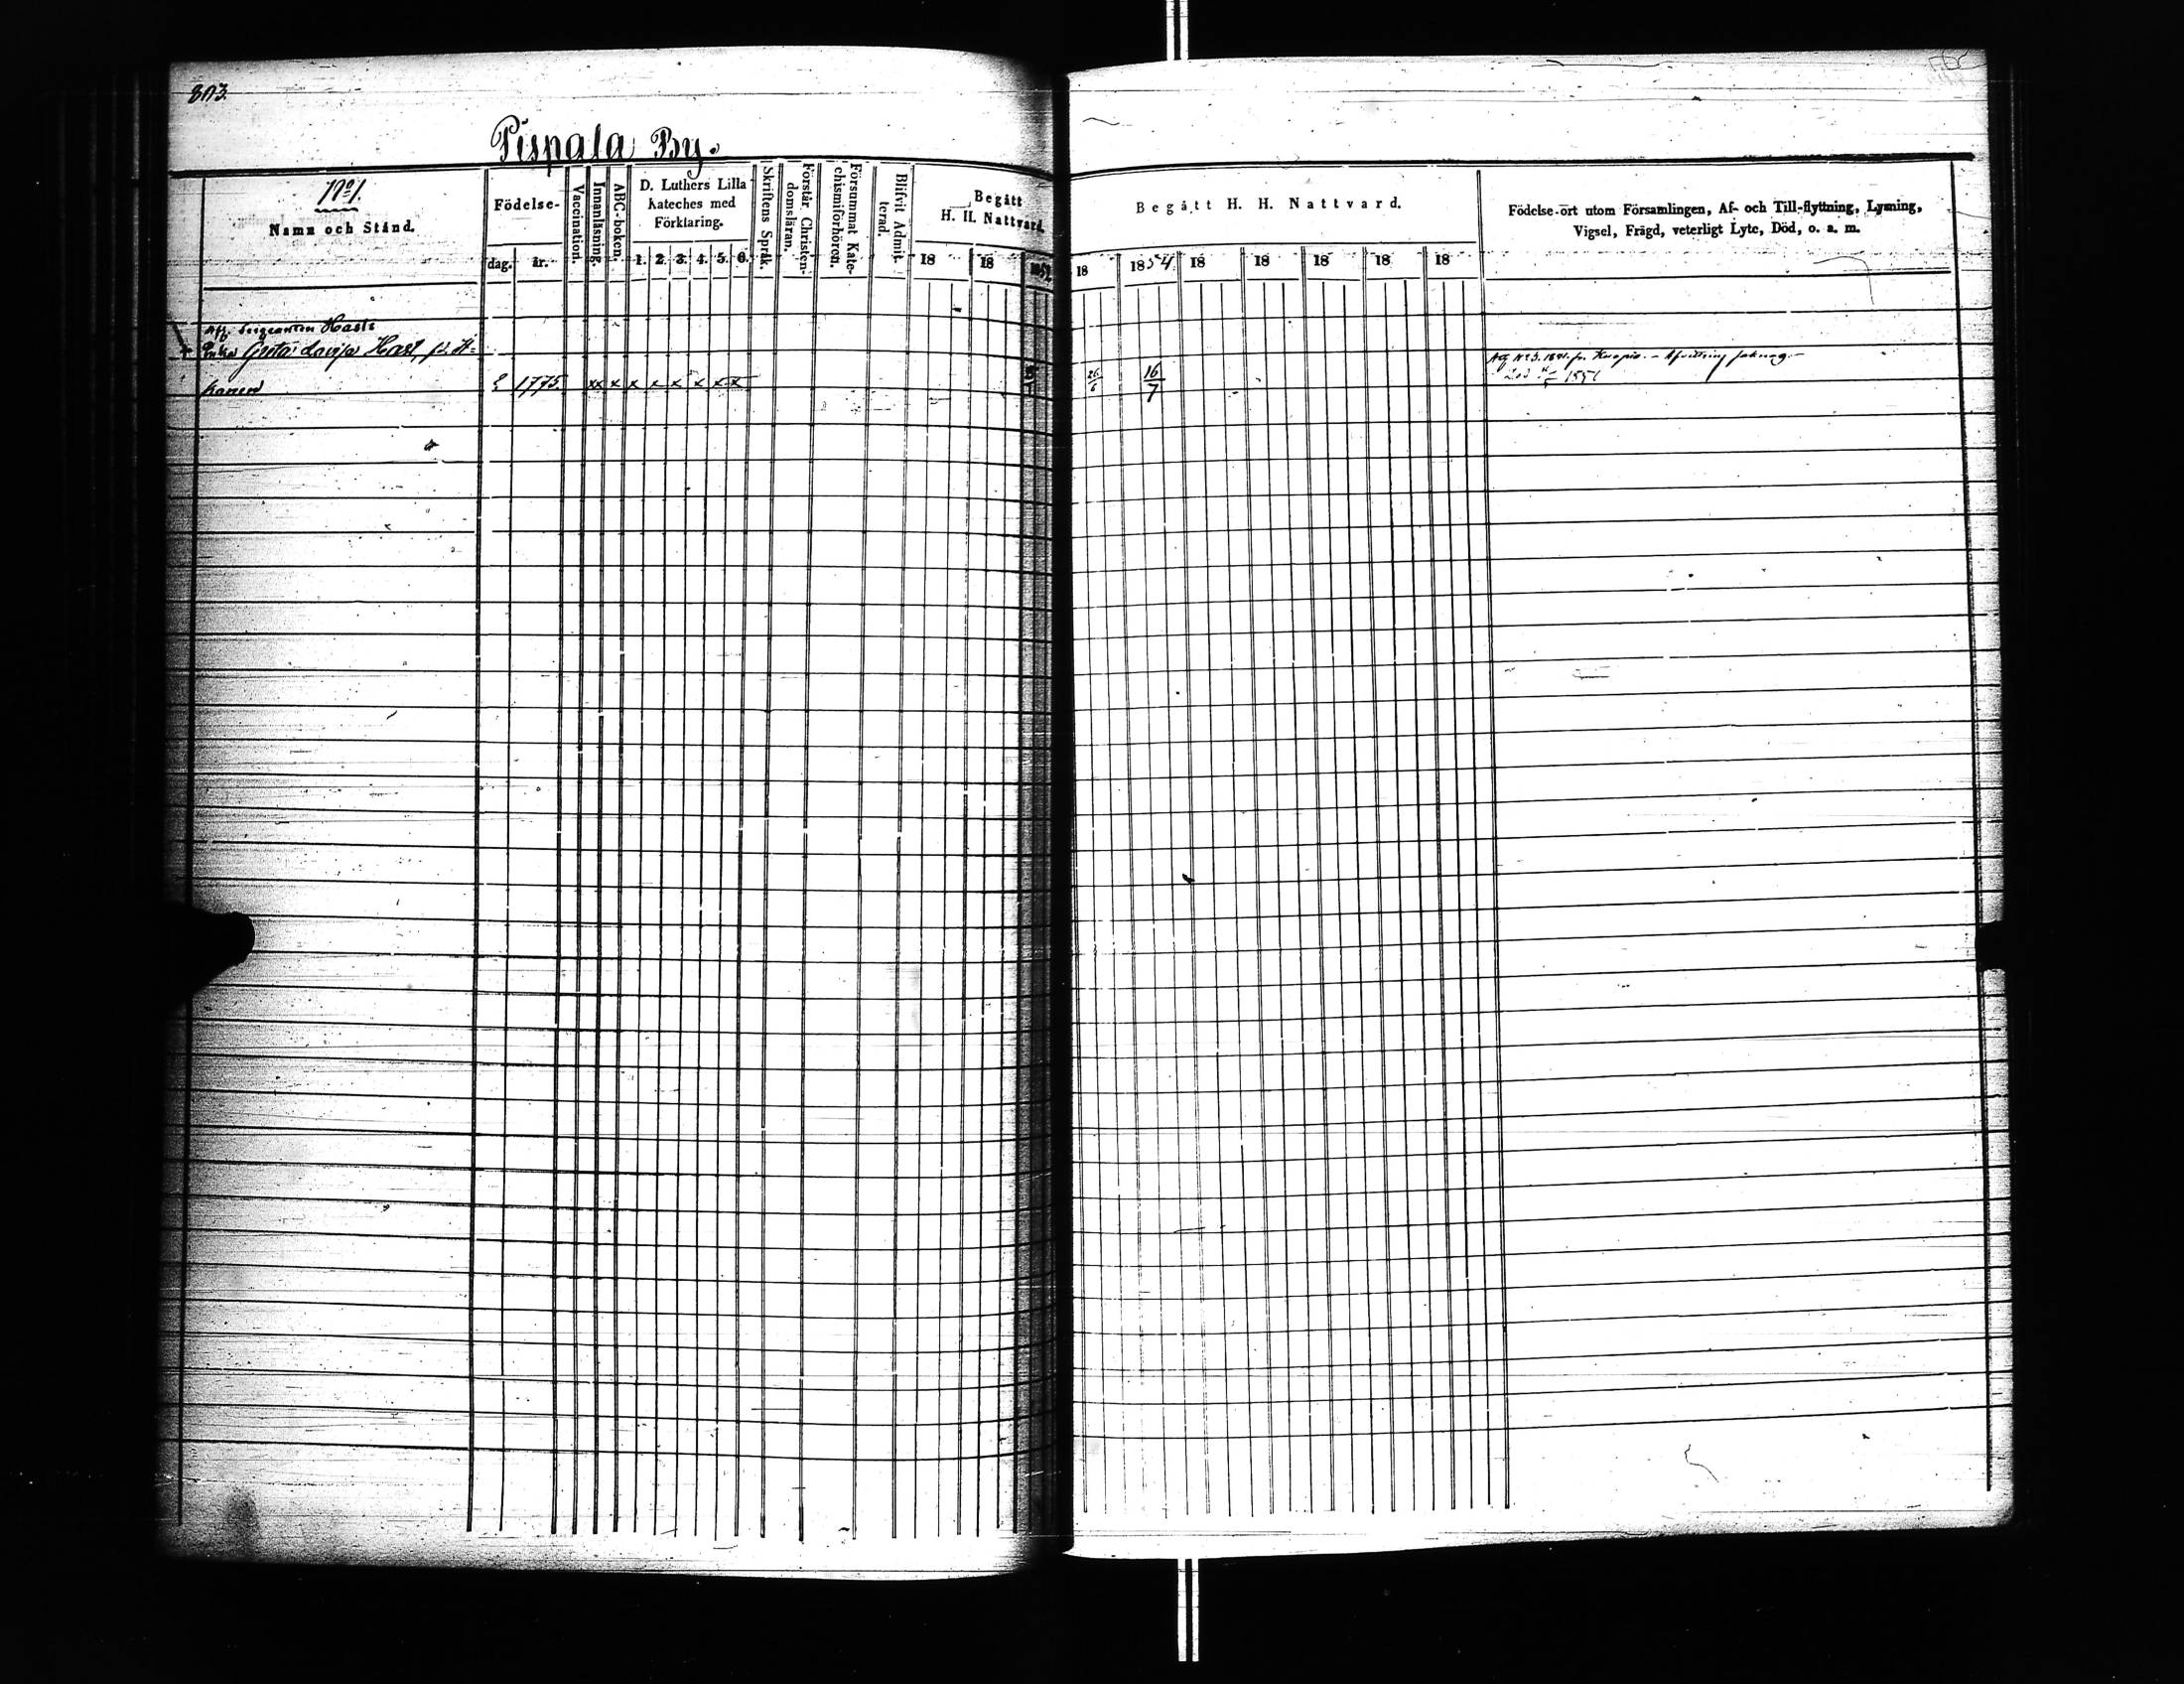 803.
Pispala By.
No 1.
Namn och Stånd.
Födelse-
dag.
år.
Vaccination.
Innanläsning.
ABC-boken.
D. Luthers Lilla
Kateches med
Förklaring.
1. 2. 3. 4. 5. 6.
Skriftens Språk.
Förstår Christen-
domsläran.
Försummat Kate-
chismiförhören.
Blifvit Admit-
terad.
Begått
H. H. Nattvard.
18 18
Begått H. H. Nattvard.
18 1854 18 18 18 18 18
Födelse-ort utom Församlingen, Af- och Till-flyttning, Lysning,
Vigsel, Frägd, veterligt Lyte, Död, o. a. m.
Afl. Sergeanten Hasts
Enka Greta Lovisa Hast,
1775. xx x x x x x x x
26/6 16/7
Kuopio. –